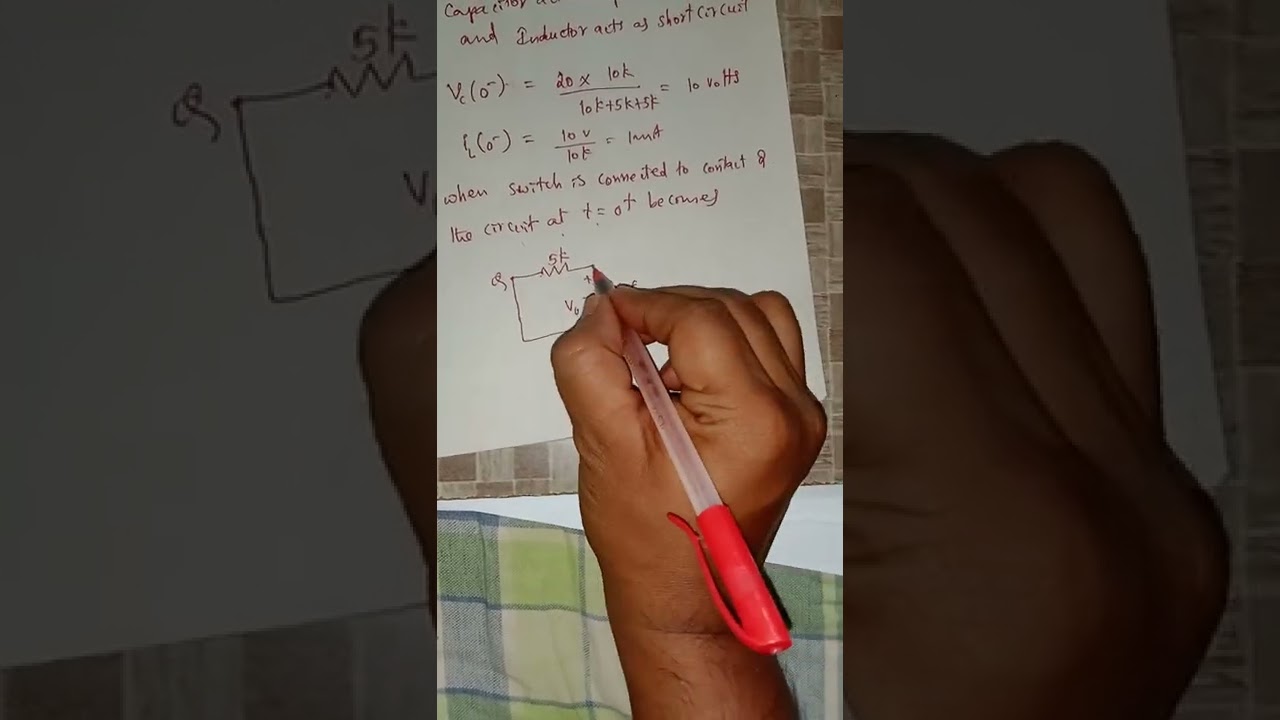 Capacitor
and Inductor acts as short circuit
Vc(0-) = 20 x 10k / 10k+5k+5k = 10 volts
iL(0-) = 10 v / 10k = 1mA
when switch is connected to contact Q
the circuit at t = 0+ becomes
5k
Q
+
V0
5k
Q
V